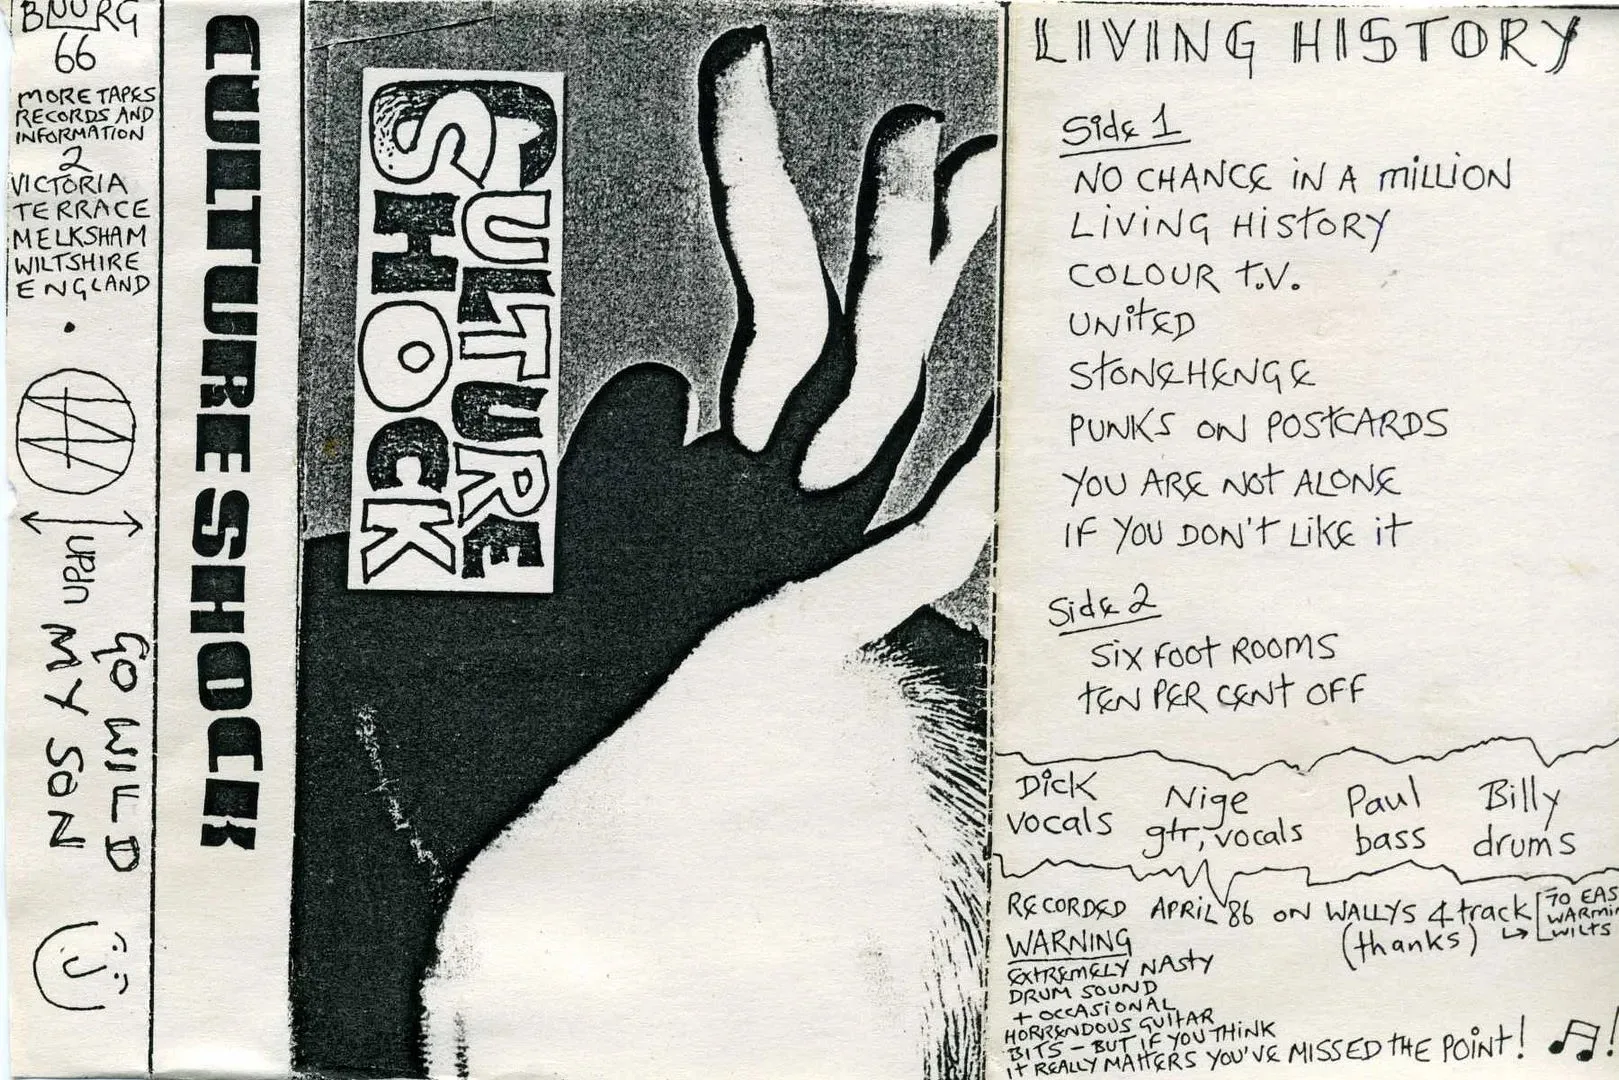 BLUURG
66
MORE TAPES
RECORDS AND
INFORMATION
2
VICTORIA
TERRACE
MELKSHAM
WILTSHIRE
ENGLAND
GO WILD
MY SON
CULTURE SHOCK
CULTURE
SHOCK
LIVING HISTORY
Side 1
NO CHANCE iN A MiLLiON
LiViNG HiSTORY
COLOUR T.V.
UNiTED
STONEHENGE
PUNKS ON POSTCARDS
YOU ARE NOT ALONE
IF YOU DON'T LiKE iT
Side 2
SiX FOOT ROOMS
TEN PER CENT OFF
Dick
vocals
Nige
gtr, vocals
Paul
bass
Billy
drums
RECORDED APRIL '86 ON WALLYS 4 track
(thanks)
70 EAS
WARMiN
WiLTS
WARNiNG
EXTREMELY NASTY
DRUM SOUND
+ OCCASiONAL
HORRENDOUS GUiTAR
BiTS – BUT iF YOU THiNK
iT REALLY MATTERS YOU'VE MISSED THE POiNT!